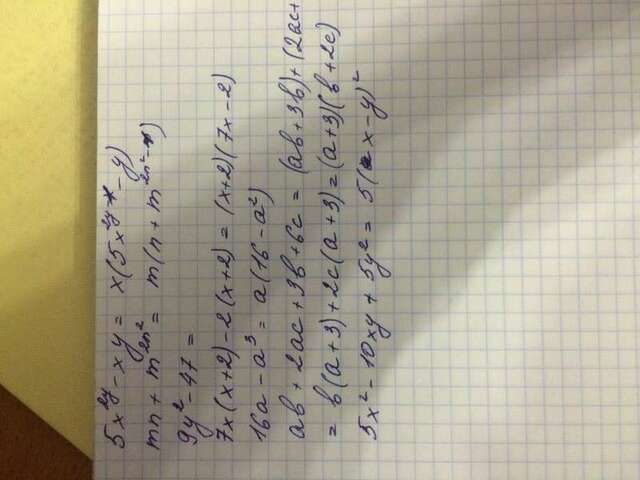 5x^{2y} - xy = x(5x^{2y} - y)
mn + m^{2n²} = m(n + m^{2n²-})
9y² - 47 =
7x(x+2) - 2(x+2) = (x+2)(7x-2)
16a - a³ = a(16 - a²)
ab + 2ac + 3b + 6c = (ab + 3b) + (2ac +
= b(a+3) + 2c(a+3) = (a+3)(b+2c)
5x² - 10xy + 5y² = 5(x-y)²